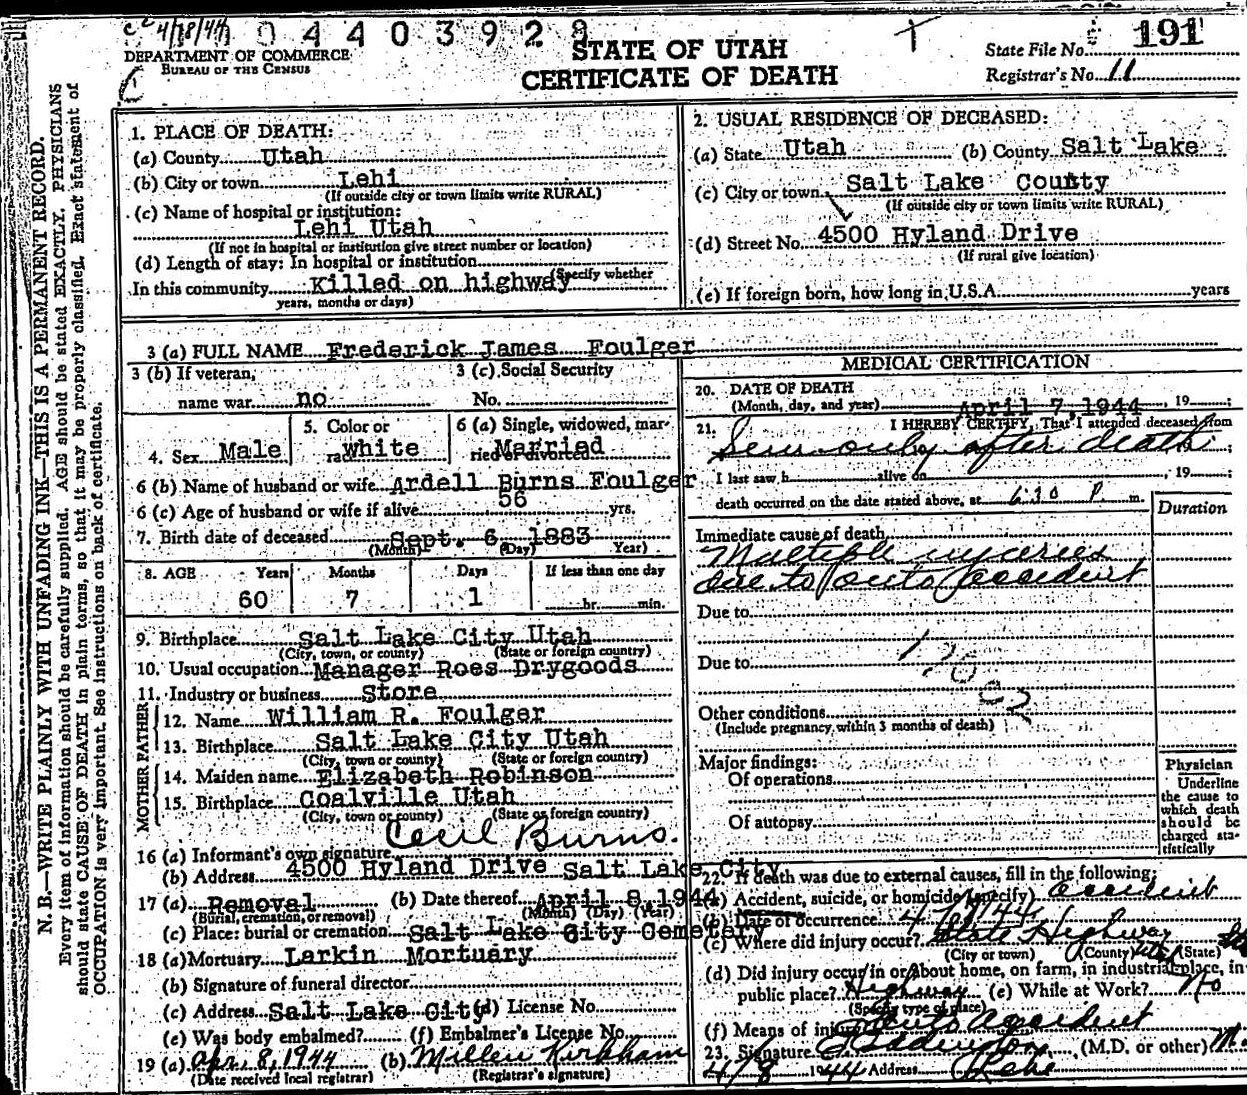 c² 4/18/44 0 4 4 0 3 9 2 8
STATE OF UTAH
CERTIFICATE OF DEATH
DEPARTMENT OF COMMERCE
BUREAU OF THE CENSUS
State File No. 191
Registrar's No. 11
N. B.—WRITE PLAINLY WITH UNFADING INK—THIS IS A PERMANENT RECORD.
Every item of information should be carefully supplied. AGE should be stated EXACTLY. PHYSICIANS
should state CAUSE OF DEATH in plain terms, so that it may be properly classified. Exact statement of
OCCUPATION is very important. See instructions on back of certificate.
1. PLACE OF DEATH:
(a) County Utah
(b) City or town Lehi
(If outside city or town limits write RURAL)
(c) Name of hospital or institution:
Lehi Utah
(If not in hospital or institution give street number or location)
(d) Length of stay: In hospital or institution
(Specify whether
In this community Killed on highway
years, months or days)
2. USUAL RESIDENCE OF DECEASED:
(a) State Utah (b) County Salt Lake
(c) City or town Salt Lake County
(If outside city or town limits write RURAL)
(d) Street No. 4500 Hyland Drive
(If rural give location)
(e) If foreign born, how long in U.S.A. years
3 (a) FULL NAME Frederick James Foulger
3 (b) If veteran, name war no
3 (c) Social Security No.
4. Sex Male
5. Color or race white
6 (a) Single, widowed, married or divorced Married
6 (b) Name of husband or wife Ardell Burns Foulger
6 (c) Age of husband or wife if alive 56 yrs.
7. Birth date of deceased Sept. 6, 1883
(Month) (Day) Year)
8. AGE Years Months Days If less than one day
60 7 1 hr. min.
9. Birthplace Salt Lake City Utah
(City, town, or county) (State or foreign country)
10. Usual occupation Manager Roes Drygoods
11. Industry or business Store
FATHER
12. Name William R. Foulger
13. Birthplace Salt Lake City Utah
(City, town or county) (State or foreign country)
MOTHER
14. Maiden name Elizabeth Robinson
15. Birthplace Coalville Utah
(City, town or county) (State or foreign country)
16 (a) Informant's own signature Cecil Burns.
(b) Address 4500 Hyland Drive Salt Lake City
17 (a) Removal (b) Date thereof April 8, 1944
(Burial, cremation, or removal) (Month) (Day) (Year)
(c) Place: burial or cremation Salt Lake City Cemetery
18 (a) Mortuary Larkin Mortuary
(b) Signature of funeral director
(c) Address Salt Lake City (d) License No.
(e) Was body embalmed? (f) Embalmer's License No.
19 (a) Apr. 8, 1944 (b) Millen Kirkham
(Date received local registrar) (Registrar's signature)
MEDICAL CERTIFICATION
20. DATE OF DEATH
(Month, day, and year) April 7, 1944, 19
21. I HEREBY CERTIFY, That I attended deceased from
Seen only after death
I last saw h alive on , 19 ;
death occurred on the date stated above, at 6:30 P. m.
Duration
Immediate cause of death
Multiple injuries
due to auto accident
Due to
Due to
Other conditions
(Include pregnancy within 3 months of death)
Major findings:
Of operations
Of autopsy
Physician
Underline
the cause to
which death
should be
charged sta-
tistically
22. If death was due to external causes, fill in the following:
(a) Accident, suicide, or homicide (specify) accident
(b) Date of occurrence 4/7/44
(c) Where did injury occur? State Highway Utah
(City or town) (County) (State)
(d) Did injury occur in or about home, on farm, in industrial place, in
public place? Highway (e) While at Work? No
(Specify type of place)
(f) Means of injury Auto Accident
23. Signature (M.D. or other)
4/8 1944 Address Lehi